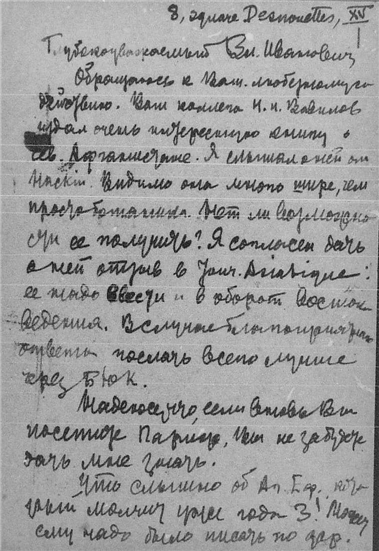 8, square Desnouettes, XV
Глубокоуважаемый Вл. Иванович
Обращаюсь к Ваш. любезному со
действию. Ваш коллега Н. И. Вавилов
издал очень интересную книгу о
Афганистане. Я слышал о ней от
Видимо она много шире, чем
просто ботаника. Нет ли возможно
сти ее получить? Я согласен дать
о ней отзыв в Jour. Asiatique:
ее надо ввести и в оборот восток
ведения. В случае благоприятного
ответа послать всего лучше
чрез БЮК.
Надеюсь, что, если вновь Вы
посетите Париж, Вы не забудете
дать мне знать.
Что слышно об Ал. Еф., кото
рый молчит уже года 3!
ему надо было писать по